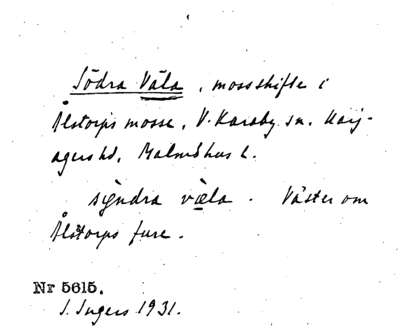 Södra Våla, mosskifte i
Ålstorps mosse, V. Karaby sn. Harj-
agers hd, Malmöhus l.
syndra væla. Väster om
Ålstorps fure.
Nr 5615.
I. Ingers 1931.